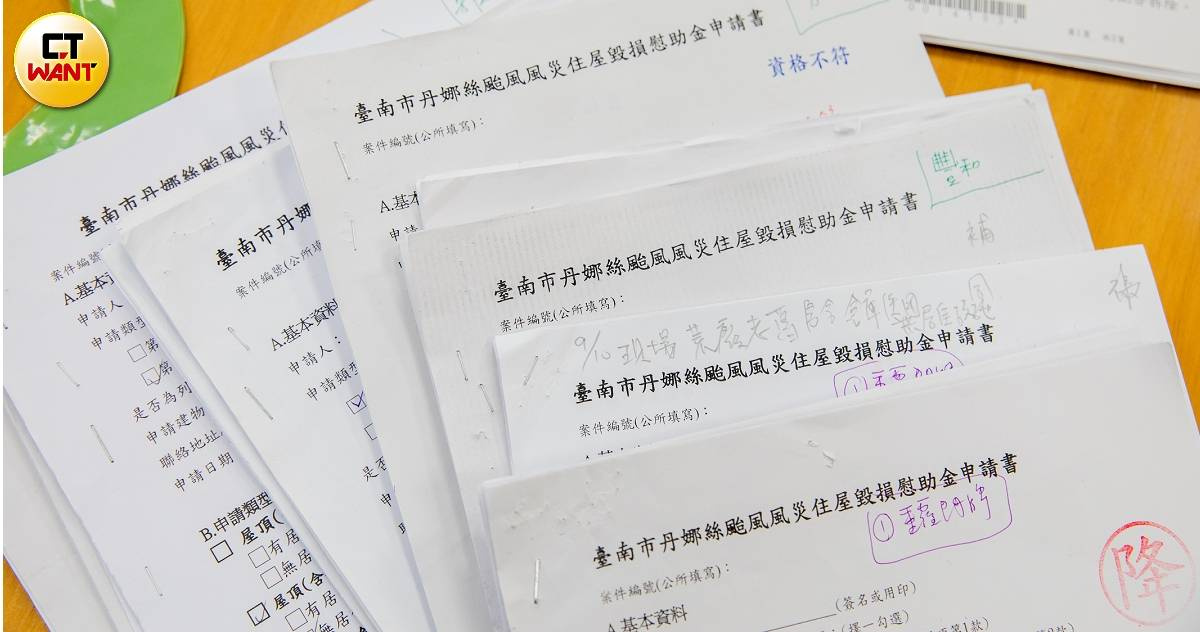 CTWANT
臺南市丹娜絲颱風風災住屋毀損慰助金申請書
資格不符
案件編號(公所填寫)：
A.基本
申請
臺南市丹娜絲颱風風災住
案件編號
A.基本資
申請人
申請類型
□第
☑第
是否為列
申請建物
聯絡地址
申請日期
B.申請類型
□ 屋頂(
□有居
□無居
☑ 屋頂(含
□有居
□無居
臺南市丹娜
案件編號(公所填
A.基本資料
申請人：
申請類型
☑
是否
申
臺南市丹娜絲颱風風災住屋毀損慰助金申請書
補
案件編號(公所填寫)：
9/10現場
臺南市丹娜絲颱風風災住屋毀損慰助金申請書
案件編號(公所填寫)：
臺南市丹娜絲颱風風災住屋毀損慰助金申請書
①
降
案件編號(公所填寫)：
A.基本資料
(簽名或用印)
(擇一勾選)
第1款)